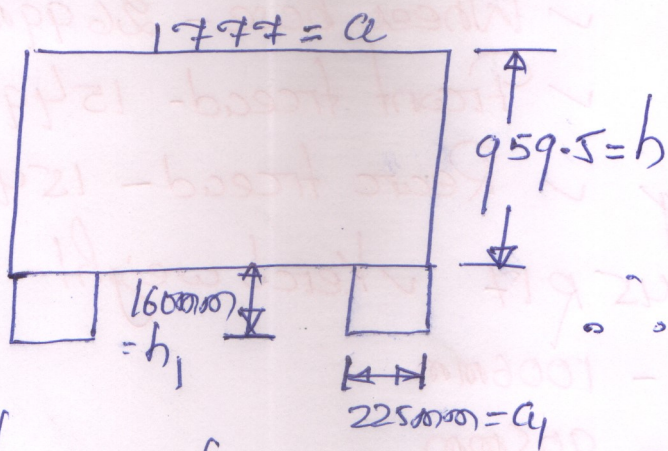 1777 = a
959.5 = h
160mm
= h1
225mm = a1